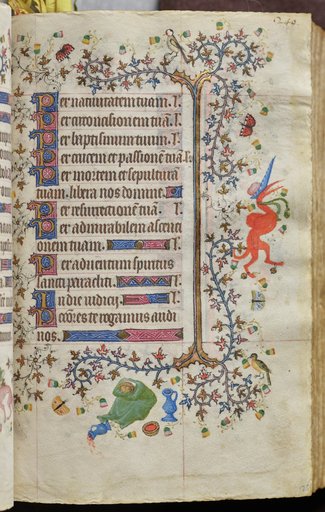 Per natiuitatem tuam. l.
Per circūcisionem tuā. l.
Per baptismum tuum. l.
Per crucem et passionē tuā. l.
Per mortem et sepulturā
tuam. libera nos domine. l.
Per resurrectionē tuā. l.
Per admirabilem ascenci
onem tuam. l.
Per aduentum spiritus
sancti paracliti. l.
In die iudicij. l.
Peccōres te rogamus audi
nos.